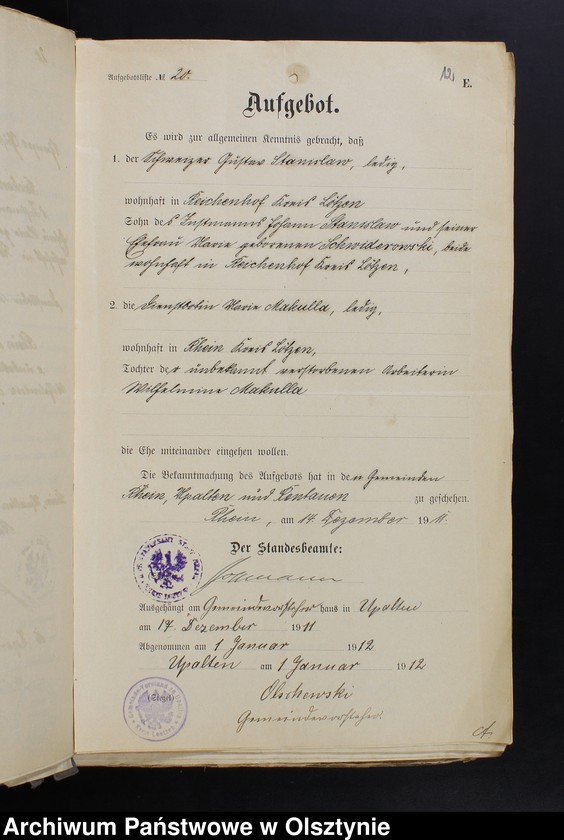 Aufgebotsliste № 20.
12.
E.
Aufgebot.
Es wird zur allgemeinen Kenntnis gebracht, daß
1. der Schweizer Gustav Stanislaw, ledig,
wohnhaft in Reichenhof Kreis Lötzen
Sohn des Instmanns Johann Stanislaw und seiner
Ehefrau Marie geborenen Schwiderowski, beide
wohnhaft in Reichenhof Kreis Lötzen,
2. die Dienstbotin Marie Makulla, ledig,
wohnhaft in Rhein Kreis Lötzen,
Tochter der unbekannt verstorbenen Arbeiterin
Wilhelmine Makulla
die Ehe miteinander eingehen wollen.
Die Bekanntmachung des Aufgebots hat in den Gemeinden
Rhein, Upalten und zu geschehen.
Rhein, am 14 Dezember 1911.
Der Standesbeamte:
Ausgehängt am Gemeindevorsteher haus in Upalten
am 17. Dezember 1911
Abgenommen am 1 Januar 1912
Upalten am 1 Januar 1912
(Siegel)
Olschewski
Gemeindevorsteher.
Archiwum Państwowe w Olsztynie